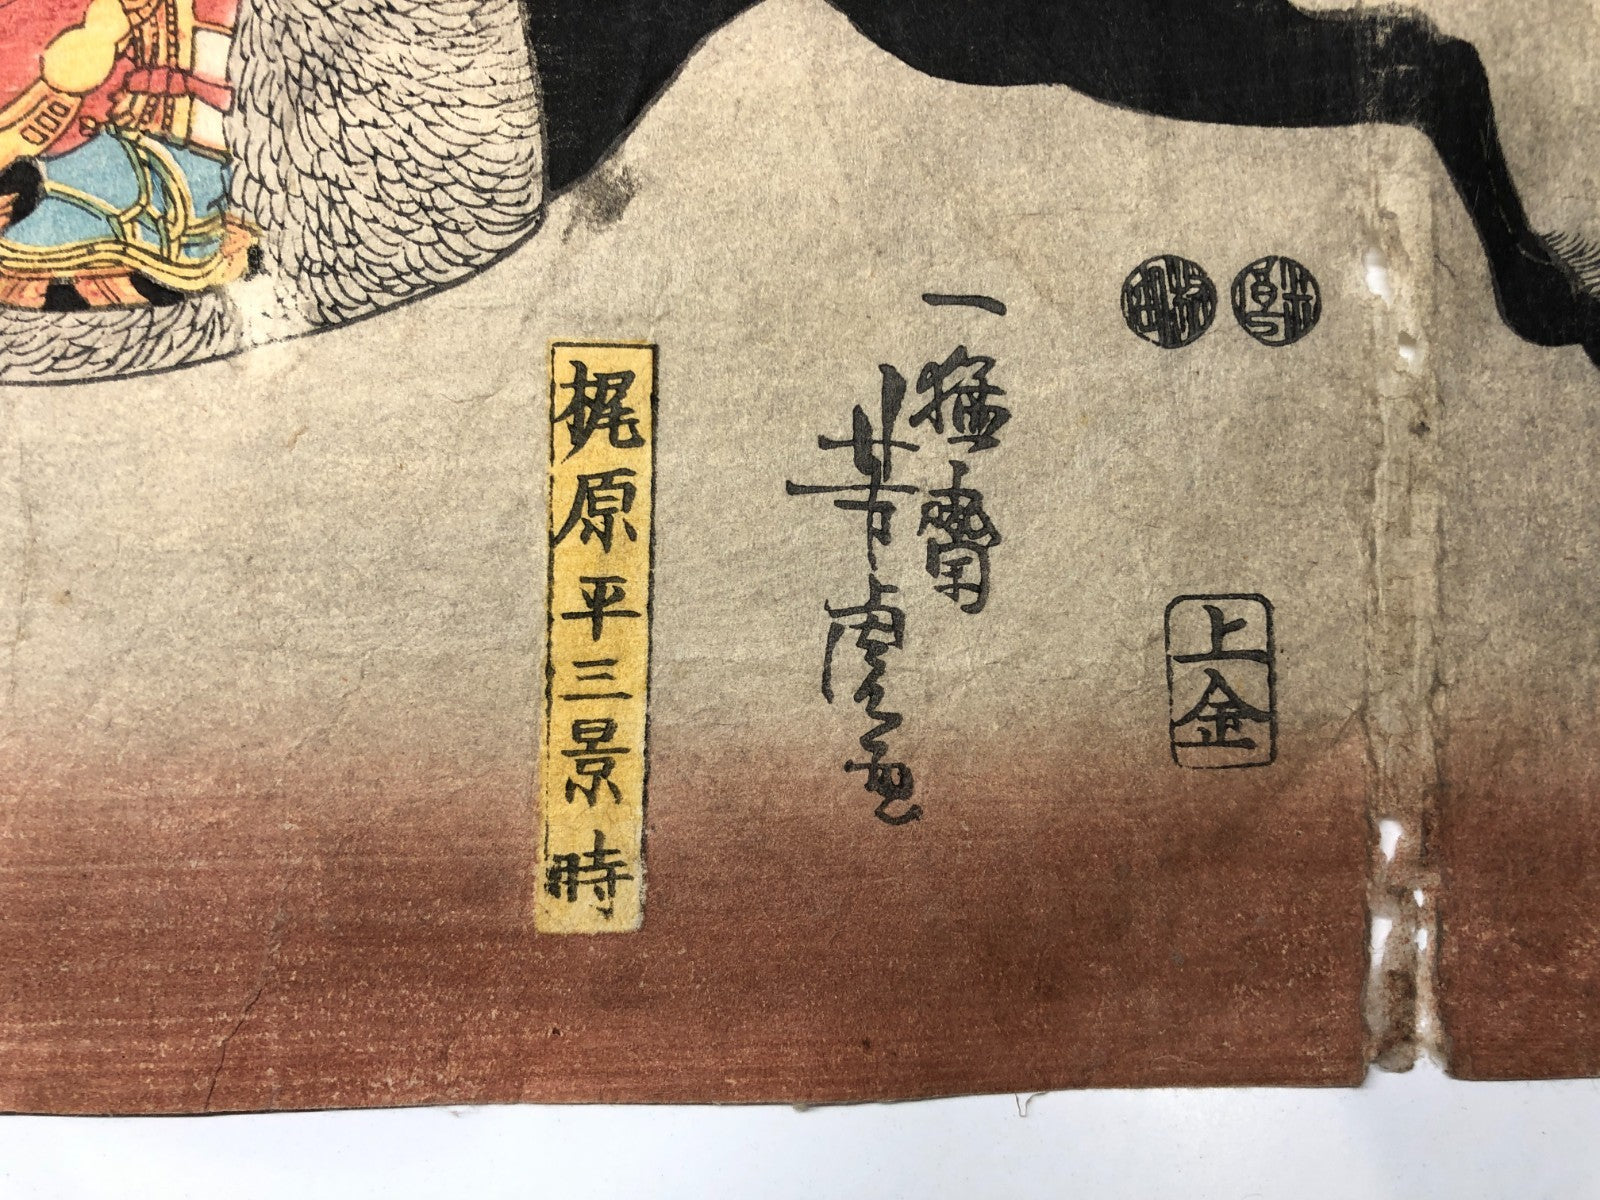 上金
一猛齋
芳虎画
梶原平三景時